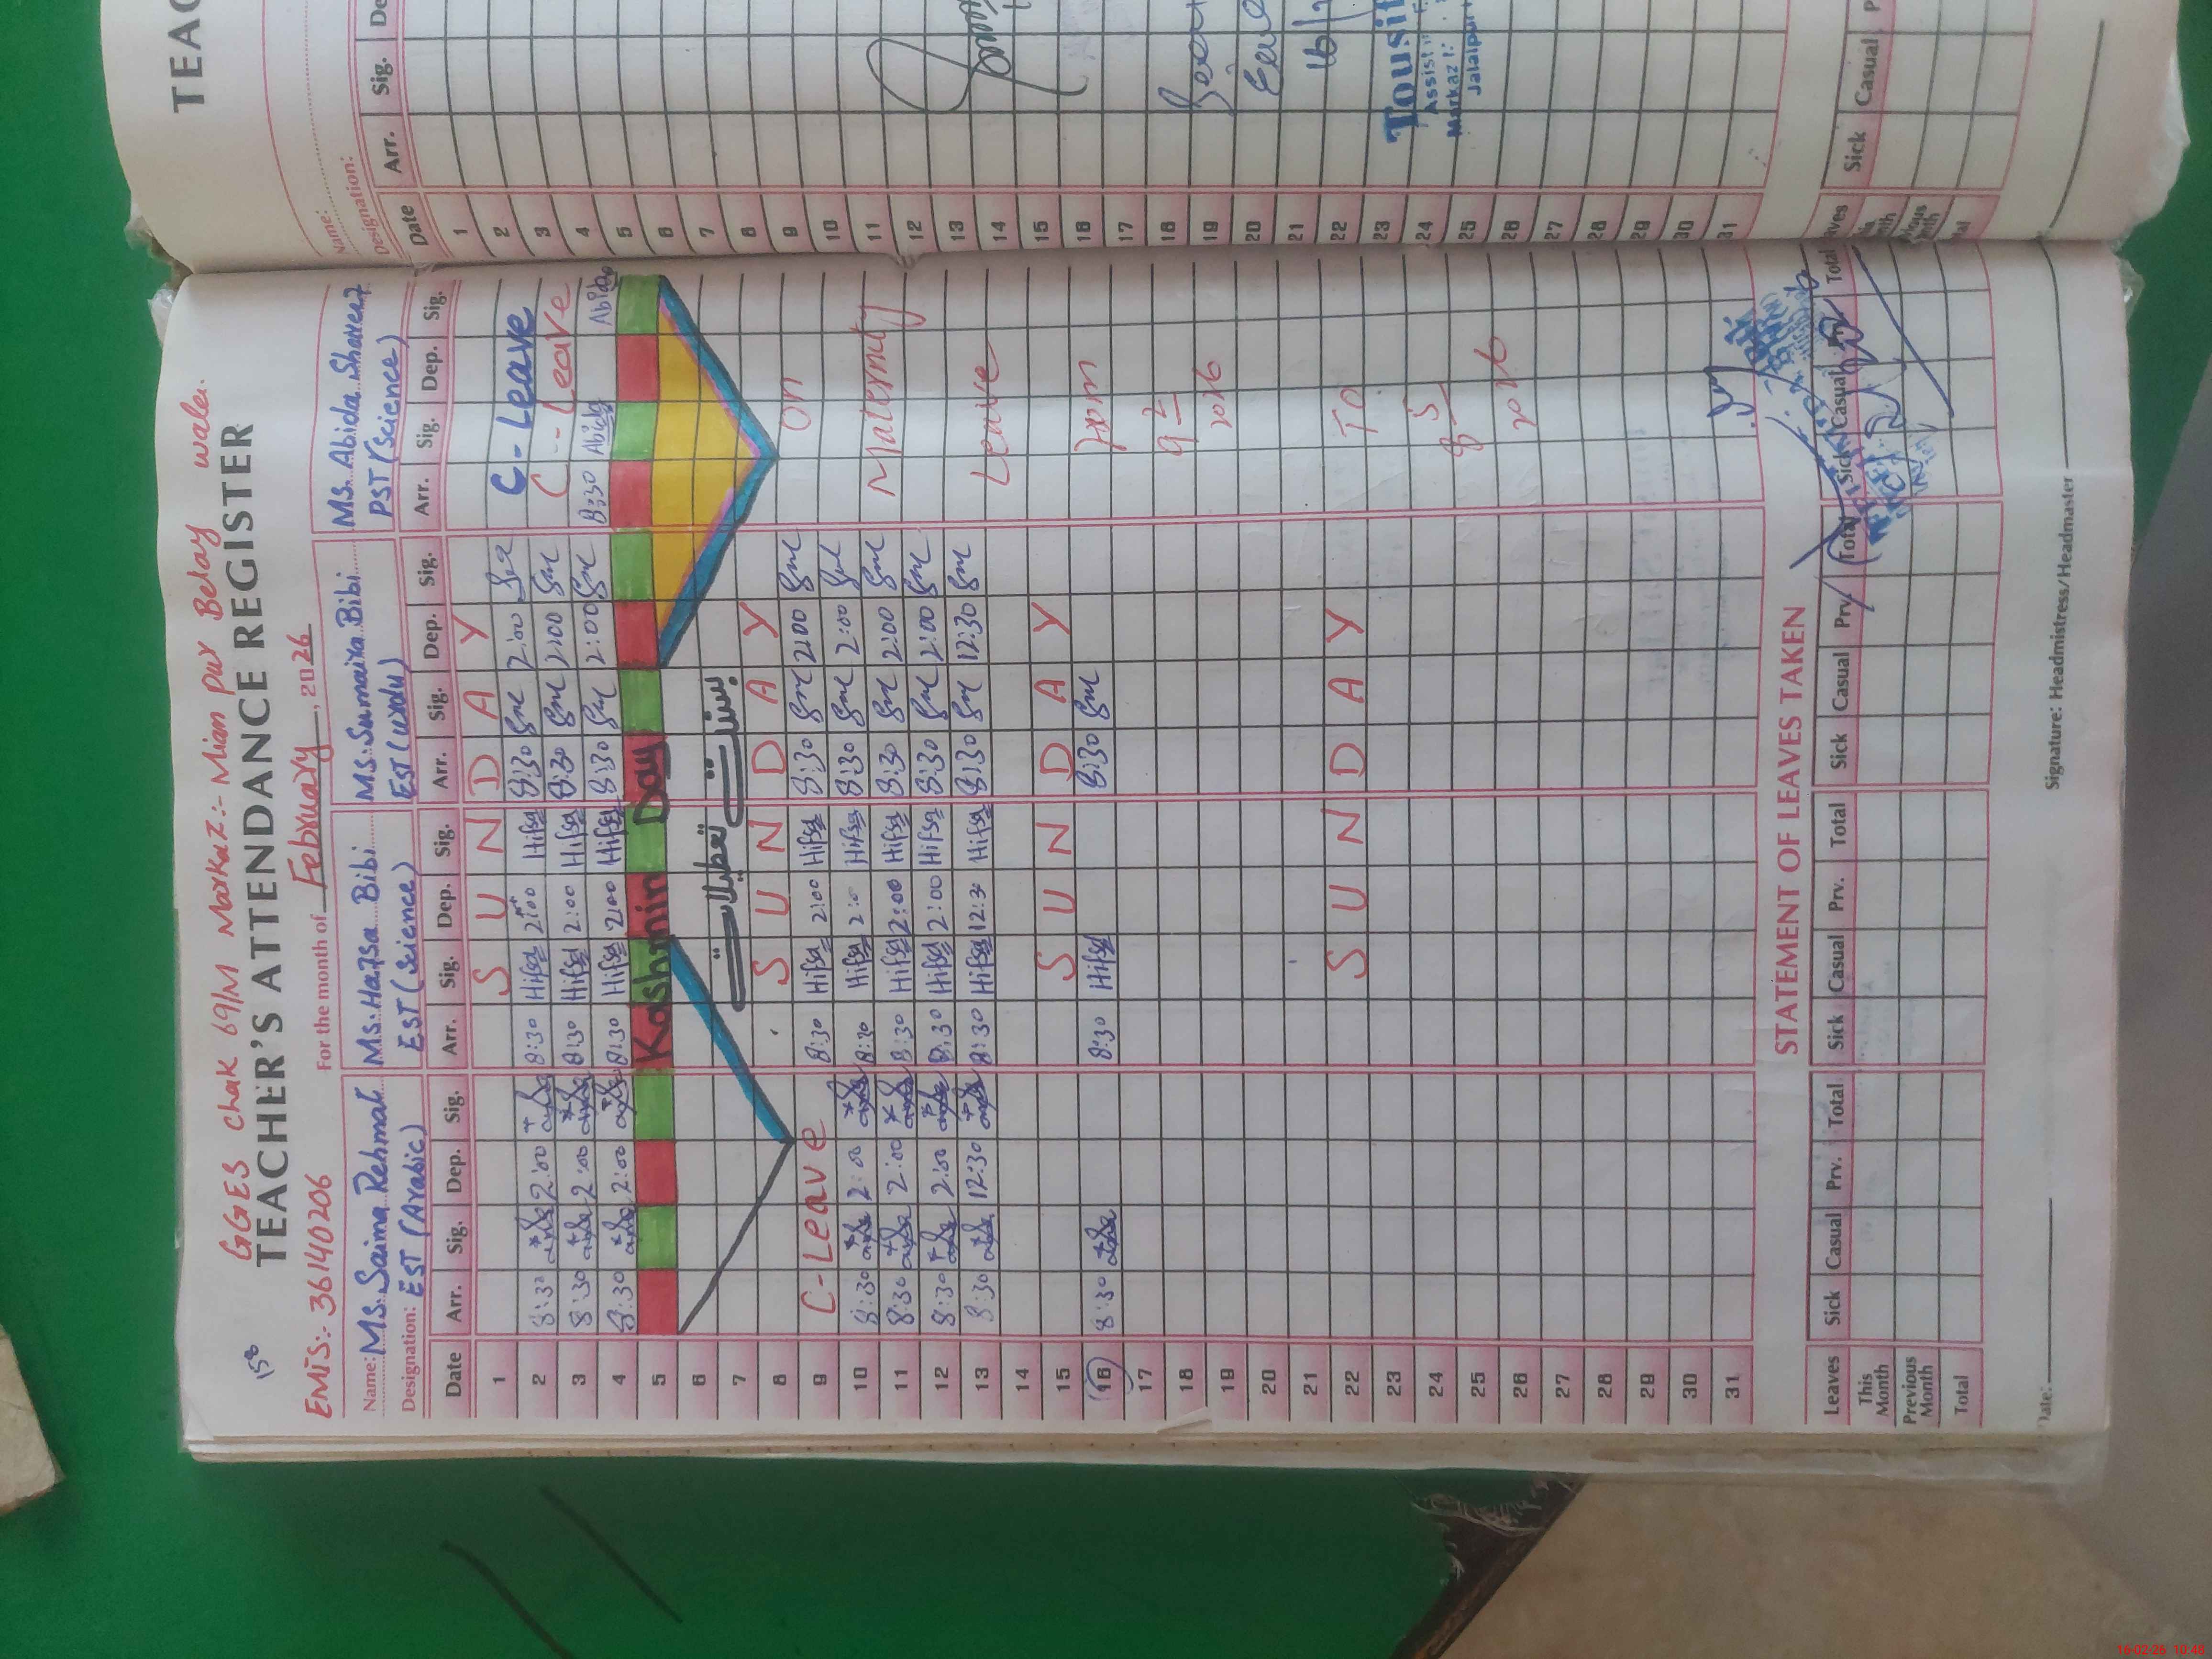 158
GGES Chak 69/M Markaz:- Mian pur Belay wala.
EMIS:- 36140206
TEACHER'S ATTENDANCE REGISTER
For the month of February, 2026
Name: MS. Saima Rehmat MS. Hafsa Bibi MS. Sumaira Bibi MS. Abida Shareef
Designation: EST (Arabic) EST (Science) EST (urdu) PST (Science)
Date Arr. Sig. Dep. Sig. Arr. Sig. Dep. Sig. Arr. Sig. Dep. Sig. Arr. Sig. Dep. Sig.
1 S U N D A Y
2 8:30 2:00 8:30 Hifsa 2:00 Hifsa 8:30 2:00 C-Leave
3 8:30 2:00 8:30 Hifsa 2:00 Hifsa 8:30 2:00 C-Leave
4 8:30 2:00 8:30 Hifsa 2:00 Hifsa 8:30 2:00 8:30 Abida Abida
5 Kashmir Day
6
7 تعطیلات بسنت
8 S U N D A Y
9 C-Leave 8:30 Hifsa 2:00 Hifsa 8:30 2:00 On
10 8:30 2:00 8:30 Hifsa 2:00 Hifsa 8:30 2:00
11 8:30 2:00 8:30 Hifsa 2:00 Hifsa 8:30 2:00 Maternity
12 8:30 2:00 8:30 Hifsa 2:00 Hifsa 8:30 2:00
13 8:30 12:30 8:30 Hifsa 12:30 Hifsa 8:30 12:30 Leave
14
15 S U N D A Y
16 8:30 8:30 Hifsa 8:30 from
17
18 9 2
19 2026
20
21
22 S U N D A Y To
23
24 5
25 8
26 2026
27
28
29
30
31
STATEMENT OF LEAVES TAKEN
Leaves Sick Casual Prv. Total Sick Casual Prv. Total Sick Casual Prv. Total Sick Casual Prv. Total
This Month
Previous Month
Total
Date: Signature: Headmistress/Headmaster
TEAC
Name:
Designation:
Date Arr. Sig. De
1
2
3
4
5
6
7
8
9
10
11
12
13
14
15
16
17
18
19
20
21
22
23
24
25
26
27
28
29
30
31
16/
Tousif
Assist
Markaz
Jalalpur
Sick Casual P
16-02-26 10:48